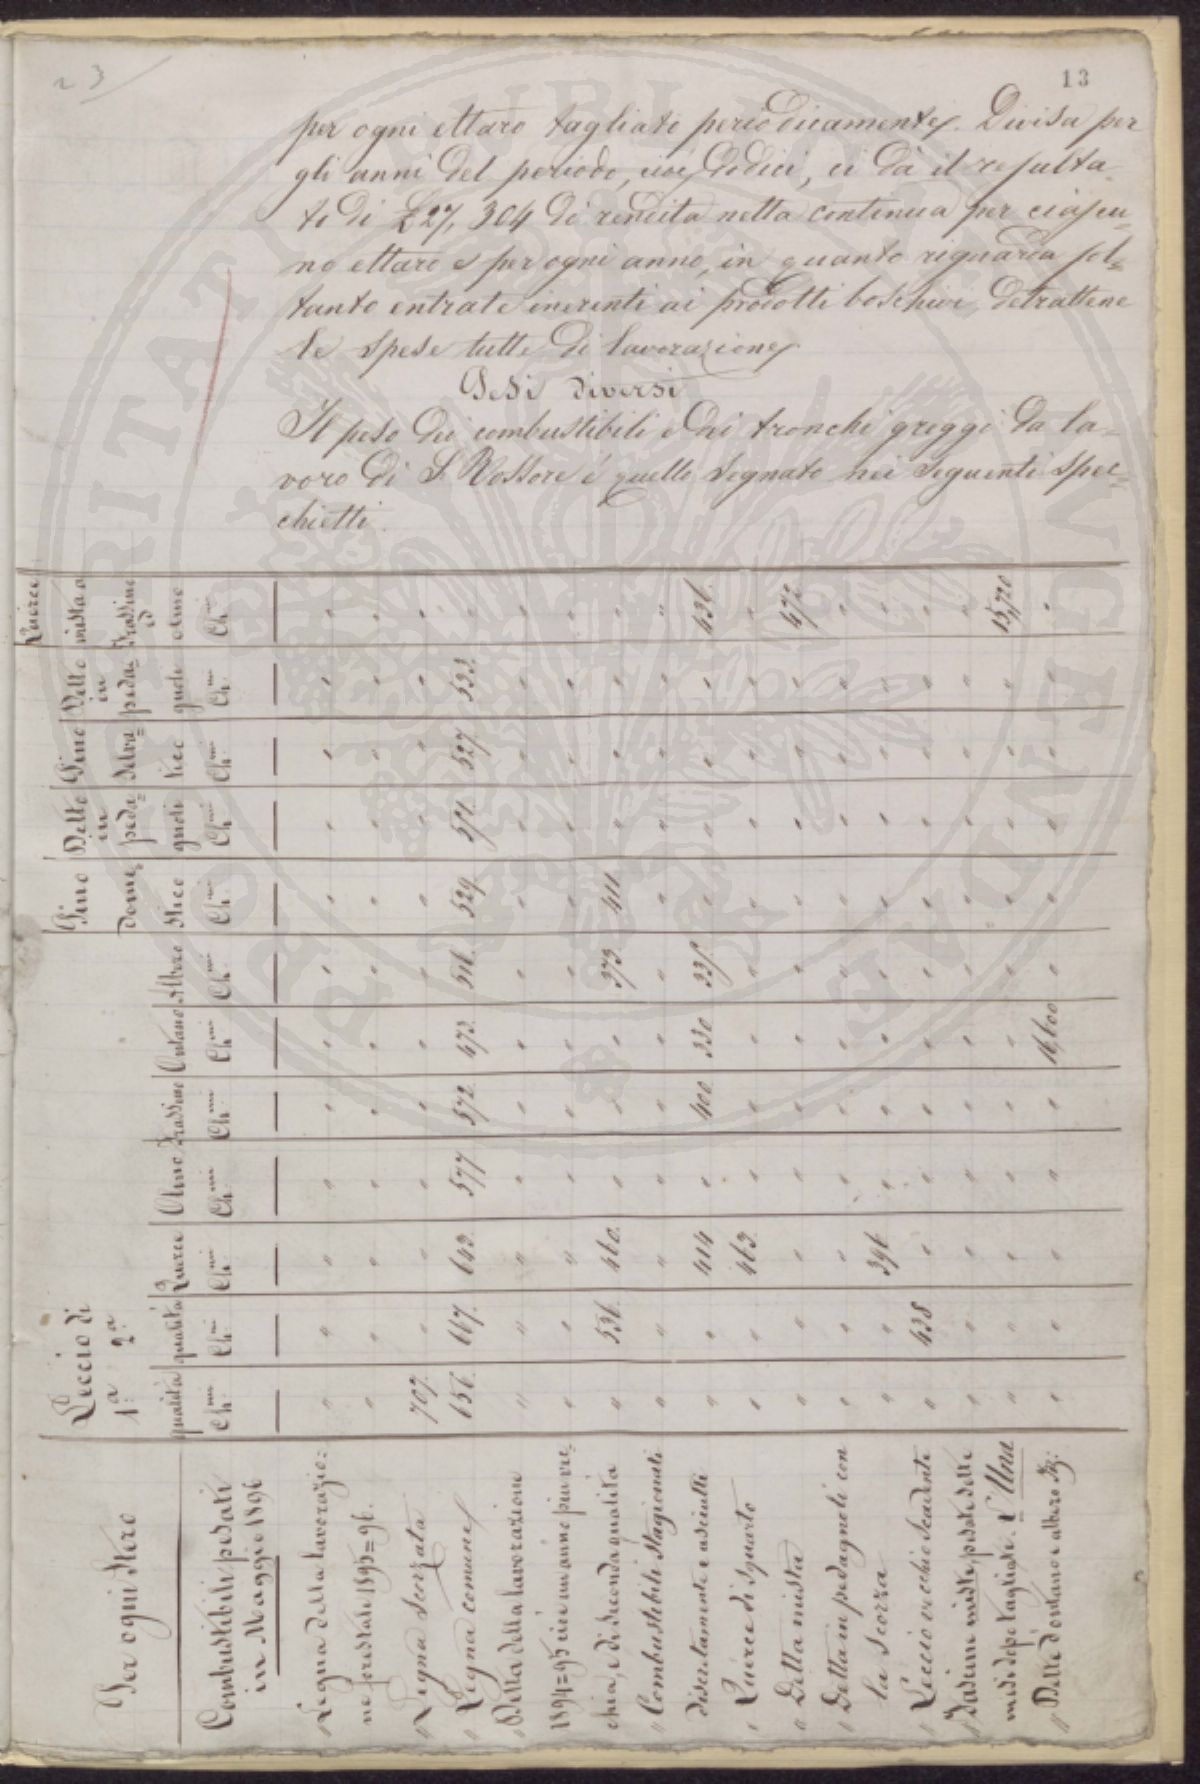 23
13
per ogni ettaro tagliato periodicamente. Divisa per
gli anni del periodo, cioè dodici, ci dà il resulta-
to di £27,304 di rendita netta continua per ciascu-
no ettaro e per ogni anno, in quanto riguarda sol-
tanto entrate inerenti ai prodotti boschivi detrattene
le spese tutte di lavorazione.
Pesi diversi
Il peso dei combustibili e dei tronchi greggi da la-
voro di S. Rossore è quello segnato nei seguenti spec-
chietti.
Per ogni Stero
Leccio di
1ª 2ª
qualità qualità Querce Olmo Frassino Ontano Albero
Pino Dome stico
Detto in peda= gnoli
Pino Selva= tico
Detto in peda= gnoli
Querce mista a Frassino ed olmo
Combustibili pesati
in Maggio 1896
Chmi Chmi Chmi Chmi Chmi Chmi Chmi Chmi Chmi Chmi Chmi Chmi
Legna della lavorazio=
ne forestale 1895=96.
" Legna Scorzata 707.
" Legna comune 656. 667. 643. 577 572. 473. 516. 529. 571. 527. 533.
" Detta della lavorazione
1894=95 cioè un anno più vec=
chia, e di seconda qualità 536. 460. 373. 411.
" Combustibili stagionati
discretamente e asciutti 414 400. 330 335. 436.
" Querce di squarto 463.
" Detta mista 472
" Detta in pedagnoli con
la scorza 396
" Leccio vecchio scadente 438
" Fascine miste, pesate delle
medesime tagliate. L'Una 15,720
" Dette d'ontano e albero 16,600
PROSPERITATI PUBLICAE AUGENDAE